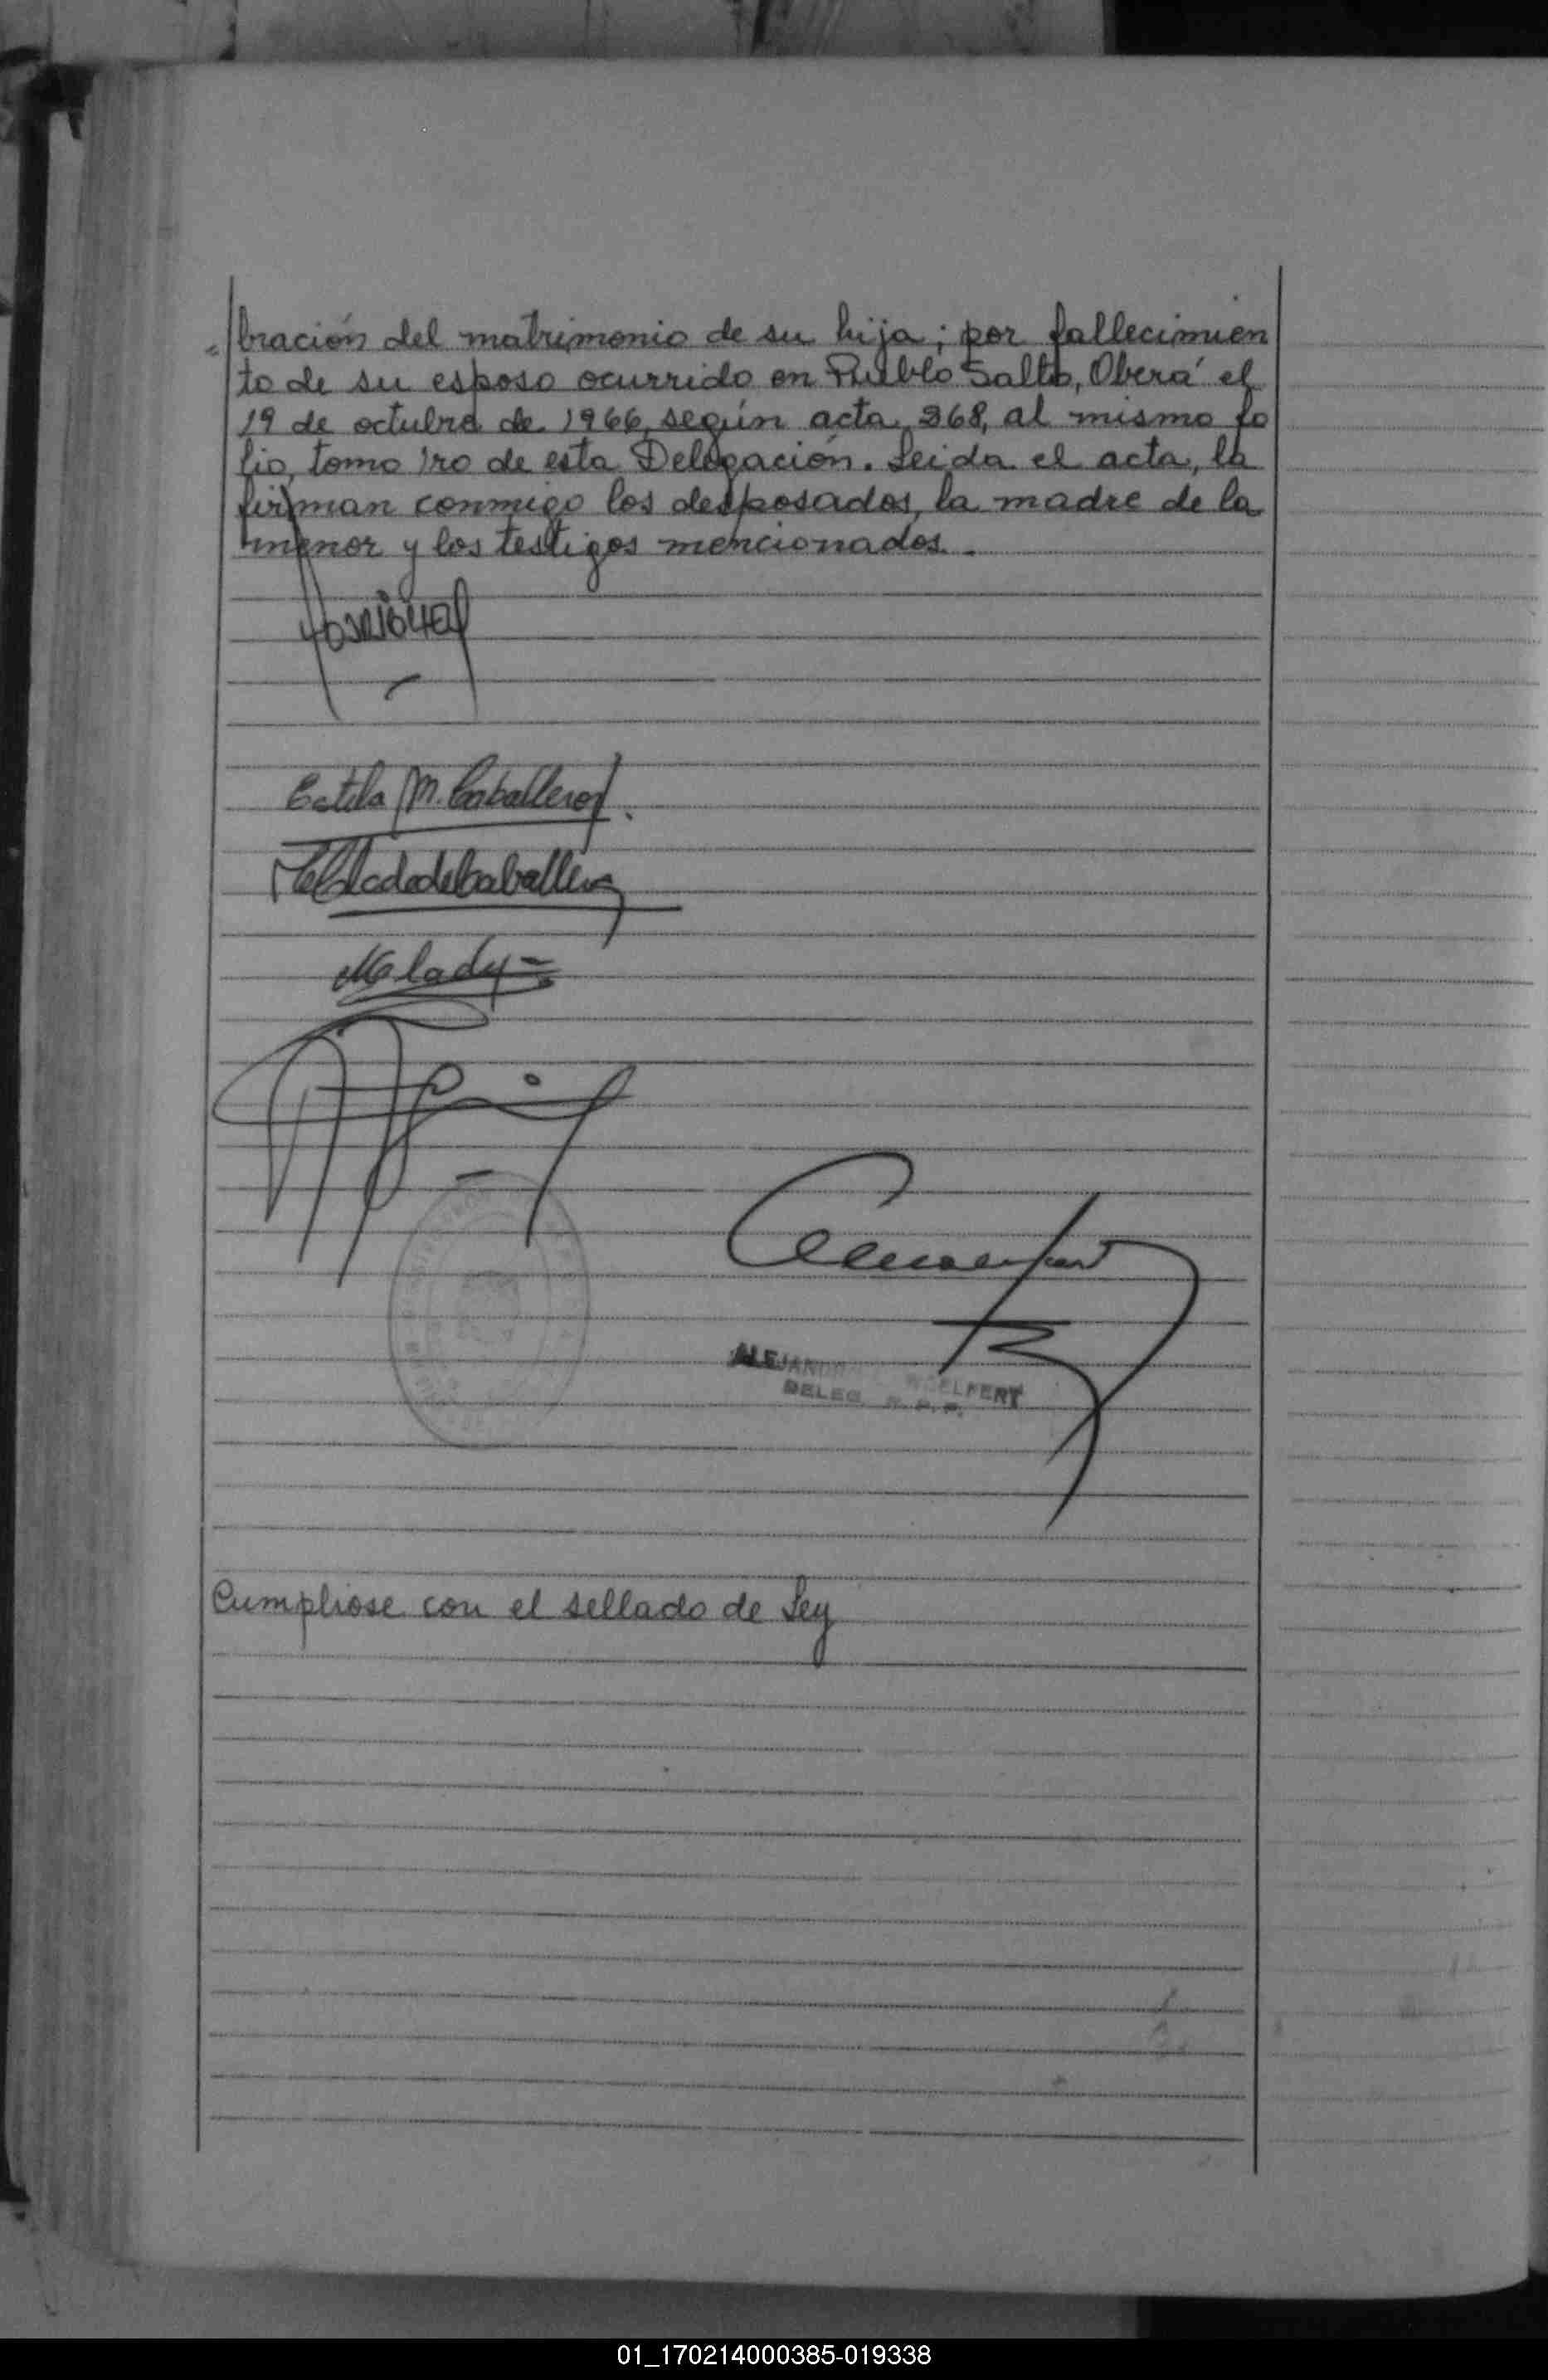 bración del matrimonio de su hija; por fallecimien
to de su esposo ocurrido en Pueblo Salto, Oberá el
19 de octubre de 1966, según acta 368, al mismo fo
lio, tomo 1ro de esta Delegación. Leida el acta, la
firman conmigo los desposados, la madre de la
menor y los testigos mencionados.
Estela M. Caballero
de Caballero
ALEJANDR WOELFERT
DELEG. R. P. P.
Cumpliose con el sellado de Ley
01_170214000385-019338